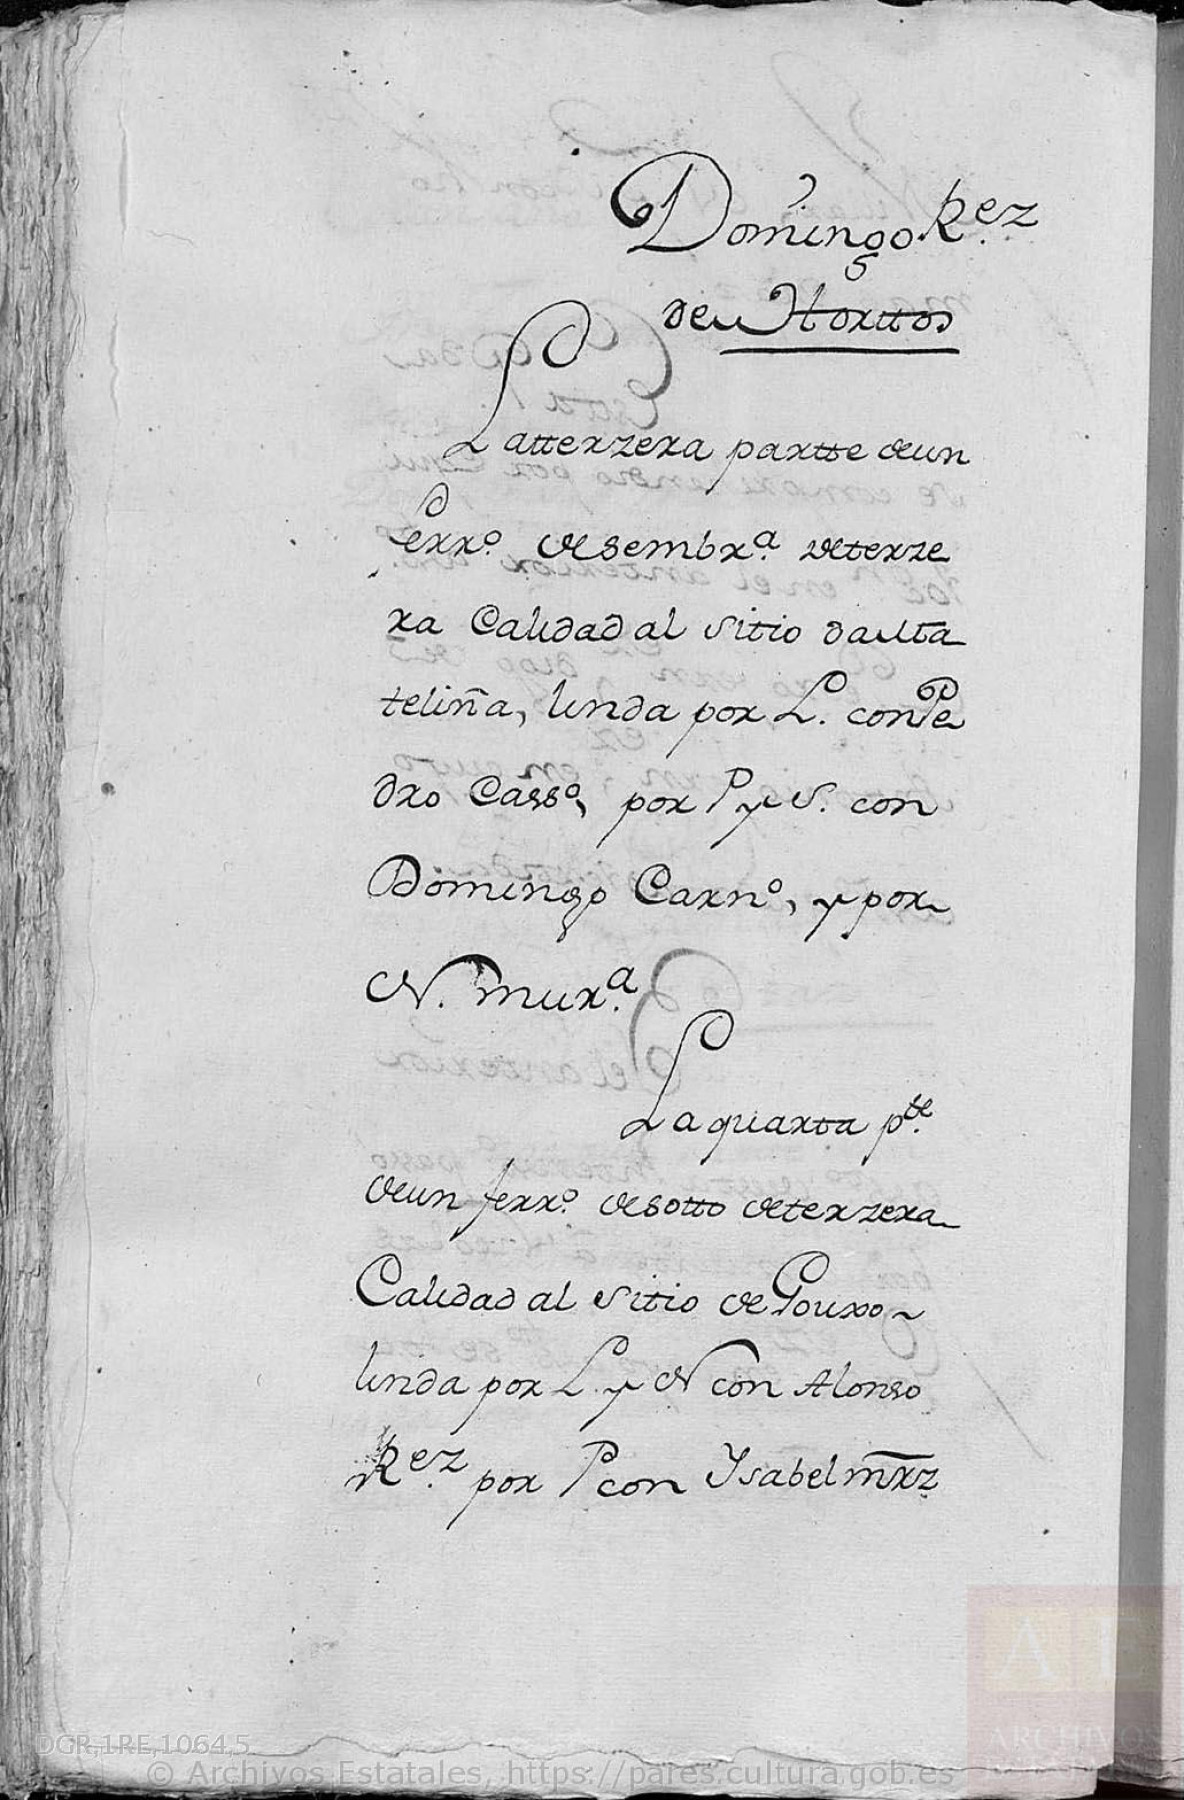 Domingo R.ez
de Horttos
La tterzera partte de un
ferr.o de sembr.a de terze
ra Calidad al sitio da Alta
teliña, linda por L. con Pe
dro Casso, por P y S. con
Domingo Carn.o, y por
N. mur.a
La quarta p.tte
de un ferr.o de sotto de terzera
Calidad al sitio de Pouxo
linda por L. y N con Alonso
R.ez por P con Ysabel mrz
DGR,1RE,1064,5
© Archivos Estatales, https://pares.cultura.gob.es
AE
ARCHIVOS